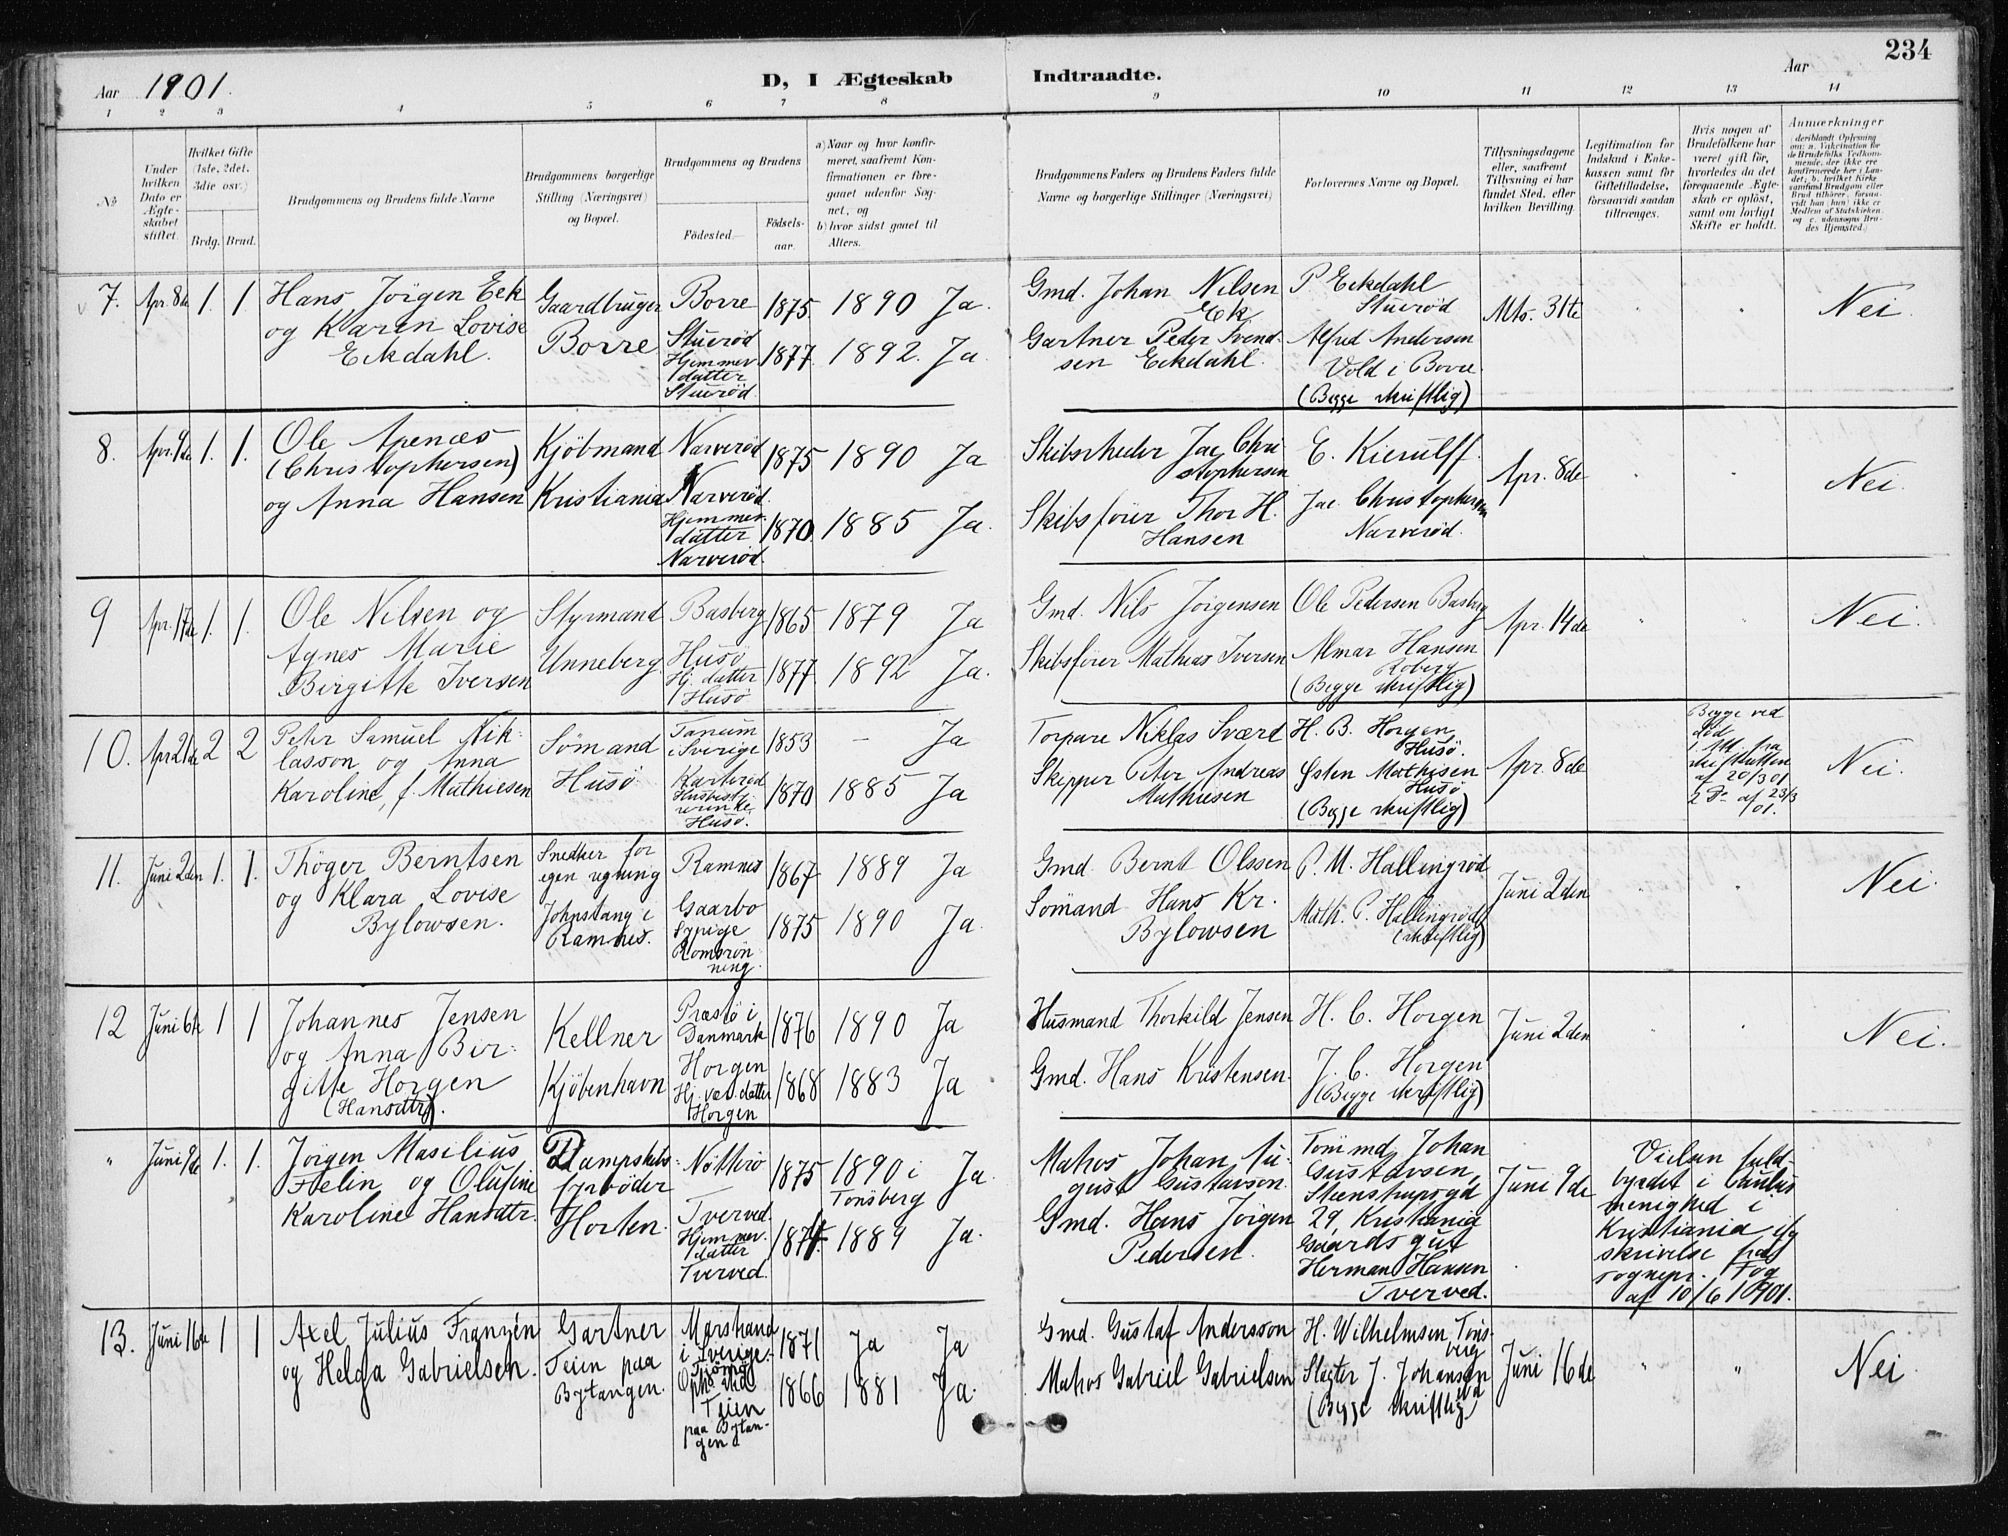 Aar 1901.
D, I Ægteskab Indtraadte.
Aar
234
1 2 3 4 5 6 7 8 9 10 11 12 13 14
No
Under hvilken Dato er Ægteskabet stiftet.
Hvilket Gifte (1ste, 2det, 3die osv.)
Brdg. Brud.
Brudgommens og Brudens fulde Navne
Brudgommens borgerlige Stilling (Næringsvei) og Bopæl.
Brudgommens og Brudens
Fødested.
Fødsels-aar.
a) Naar og hvor konfirmeret, saafremt Konfirmationen er foregaaet udenfor Sognet, og
b) hvor sidst gaaet til Alters.
Brudgommens Faders og Brudens Faders fulde Navne og borgerlige Stillinger (Næringsvei)
Forlovernes Navne og Bopæl.
Tillysningsdagene eller, saafremt Tillysning ei har fundet Sted, efter hvilken Bevilling.
Legitimation for Indskud i Enkekassen samt for Giftetilladelse, forsaavidt saadan tiltrænges.
Hvis nogen af Brudefolkene har været gift før, hvorledes da det foregaaende Ægteskab er opløst, samt om lovligt Skifte er holdt.
Anmærkninger (deriblandt Oplysning om: a. Vakcination for de Brudefolks Vedkommende, der ikke ere konfirmerede her i Landet; b. hvilket Kirkesamfund Brudgom eller Brud tilhører, forsaavidt han (hun) ikke er Medlem af Statskirken, og c. udensogns Brudes Hjemsted.)
7. Apr. 8de 1. 1 Hans Jörgen Eek Gaardbruger Borre 1875 1890 Ja. Gmd. Johan Nilsen P. Eckdahl Mts. 31te Nei.
og Karen Lovise Borre Stuerød Ek Stuerød
Eckdahl. Hjemmev. 1877 1892. Ja. Gartner Peter Svend- Alfred Andersen
datter sen Eckdahl. Vold i Borre.
Stuerød (Begge skriftlig)
8. Apr. 9de 1. 1. Ole Apenæs Kjöbmand Narverød 1875 1890 Ja Skibsrheder Jac Chri- E. Kierulff. Apr. 8de Nei.
(Christophersen) stophersen
og Anna Hansen Kristiania Narverød. Skibsfører Thor H. Jac. Christophersen
Hjemmev. 1870 1885 Ja. Hansen Narverød.
datter
Narverød.
9 Apr. 17de 1. 1. Ole Nilsen og Styrmand Basberg 1865 1879 Ja Gmd. Nils Jörgensen Ole Pedersen Basberg Apr. 14de Nei.
Agnes Marie Unneberg. Husö Skibsfører Mathias Iversen Almar Hansen
Birgitte Iversen Hj. datter 1877 1892 Ja. Roberg
Husö (Begge skriftlig)
10. Apr. 21de 2 2 Peter Samuel Nik- Sömand Tanum 1853 – Ja Torpare Niklas Sværd H. B. Horgen Apr. 8de Begge ved Nei.
lasson og Anna Husö i Sverige Husö. død
Karoline, f. Mathiesen 1870 1885 Ja Skipper Peter Andreas Østen Mathisen 1. Att. fra
Mathiesen Husö skifteretten
Husö. (Begge skriftlig) af 20/3 01
2 Do af 23/3
01.
11. Juni 2den 1. 1. Thöger Berntsen Snedker for Ramnes 1867 1889 Ja Gmd. Bernt Olssen P. M. Hallingrød Juni 2den Nei.
og Klara Lovise egen regning Gaarbo Sömand Hans Kr. Math. P. Hallingrød
Bylowsen. Johnstang i Sypige 1875 1890 Ja. Bylowsen (skriftlig)
Ramnes. Romsrön-
ning.
12 Juni 6te 1 1 Johannes Jensen Kellner Præstö i 1876 1890 Ja Husmand Thorkild Jensen H. C. Horgen Juni 2den Nei.
og Anna Bir- Danmark
gitte Horgen Kjöbenhavn Horgen 1868 1883 Ja Gmd. Hans Kristensen. J. C. Horgen
(Hansdtr.) Hj. vær. datter (Begge skriftlig)
Horgen
" Juni 9de 1. 1. Jörgen Masilius Dampskibs- Nötterö 1875 1890 i Ja. Matros Johan Au- Tömmd. Johan Juni 9de Vielsen fuld-
Helin og Olufine fyrböder Tönsberg gust Gustavson. Gustavsen, byrdet i Paulus
Karoline Hansdtr. Horten. Tverved. Gmd. Hans Jörgen Steenstrupsgd menighed i
Hjemmev. 1874. 1889 Ja. Pedersen. 29, Kristiania Kristiania ifg
datter Gaardsgut skrivelse fra
Tverved. Herman Hansen sognepr.
Tverved. af 10/6 1901.
13. Juni 16de 1 1 Axel Julius Franzén Gartner Marstrand 1871 Ja Ja Gmd. Gustaf Andersson H. Wilhelmsen Töns- Juni 16de " " Nei
og Helga Gabrielsen. Teien paa i Sverige. berg
Bytangen. Tjömö 1866 1881 Ja. Matros Gabriel Gabrielsen Slagter J. Johansen
Oph. ved (Begge skriftlig)
Teien
paa Bytan-
gen